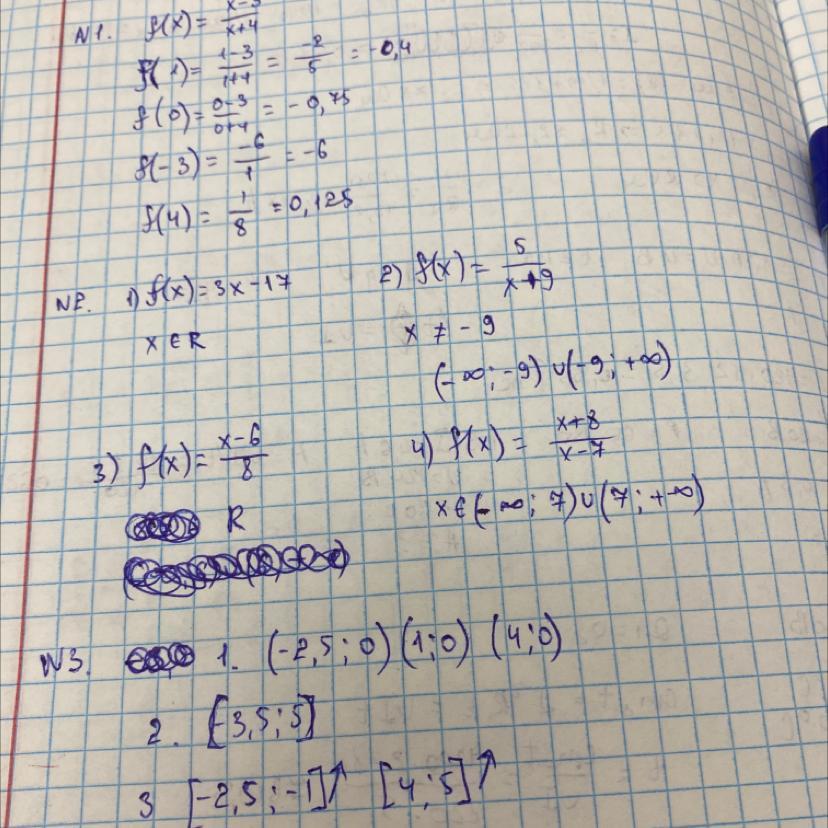 N1. f(x) = x-3/x+4
f(1) = 1-3/1+4 = -2/5 = -0,4
f(0) = 0-3/0+4 = -0,75
f(-3) = -6/1 = -6
f(4) = 1/8 = 0,125
N2. 1) f(x) = 3x-17
x ∈ R
2) f(x) = 5/x+9
x ≠ -9
(-∞; -9) ∪ (-9; +∞)
3) f(x) = x-6/8
R
4) f(x) = x+8/x-7
x ∈ (-∞; 7) ∪ (7; +∞)
N3. 1. (-2,5; 0) (1; 0) (4; 0)
2. [-3,5; 5]
3 [-2,5; -1]↑ [4; 5]↑